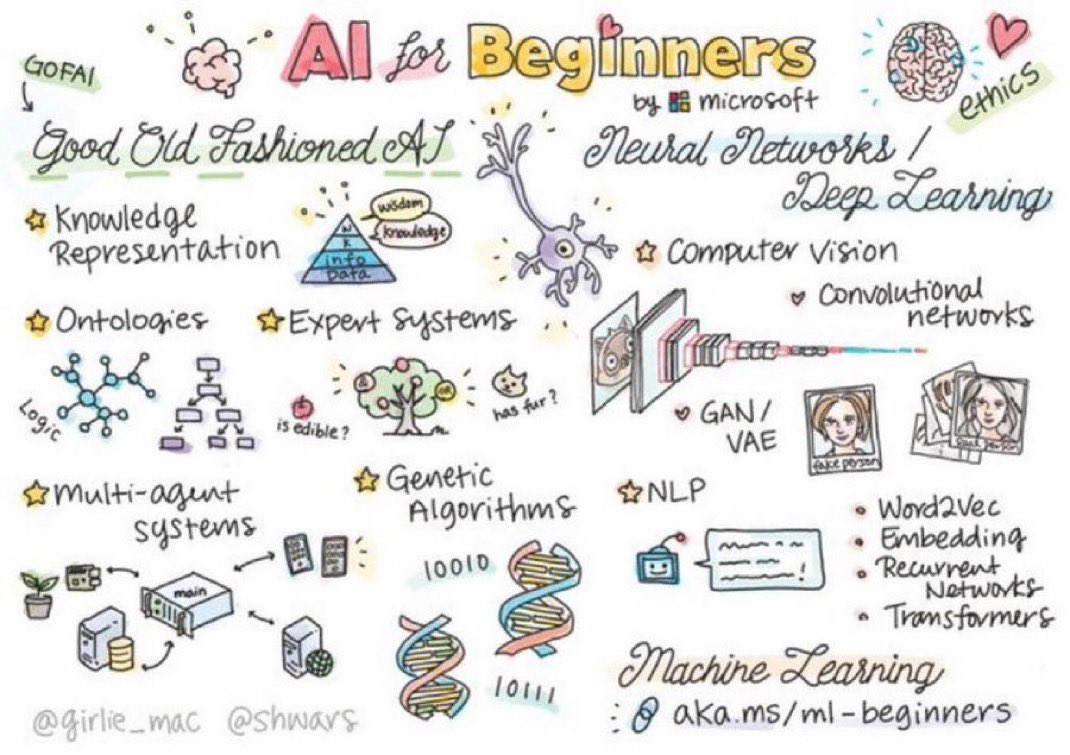 AI for Beginners
by microsoft
GOFAI
ethics
Good Old Fashioned AI
Knowledge
Representation
wisdom
knowledge
W
K
info
Data
Ontologies
Logic
Expert systems
&
OR
is edible?
has fur?
multi-agent
systems
main
Genetic
Algorithms
10010
10111
Neural Networks /
Deep Learning
Computer vision
Convolutional
networks
GAN/
VAE
fake person
NLP
Word2Vec
Embedding
Recurrent
Networks
Transformers
Machine Learning
aka.ms/ml-beginners
@girlie_mac @shwars